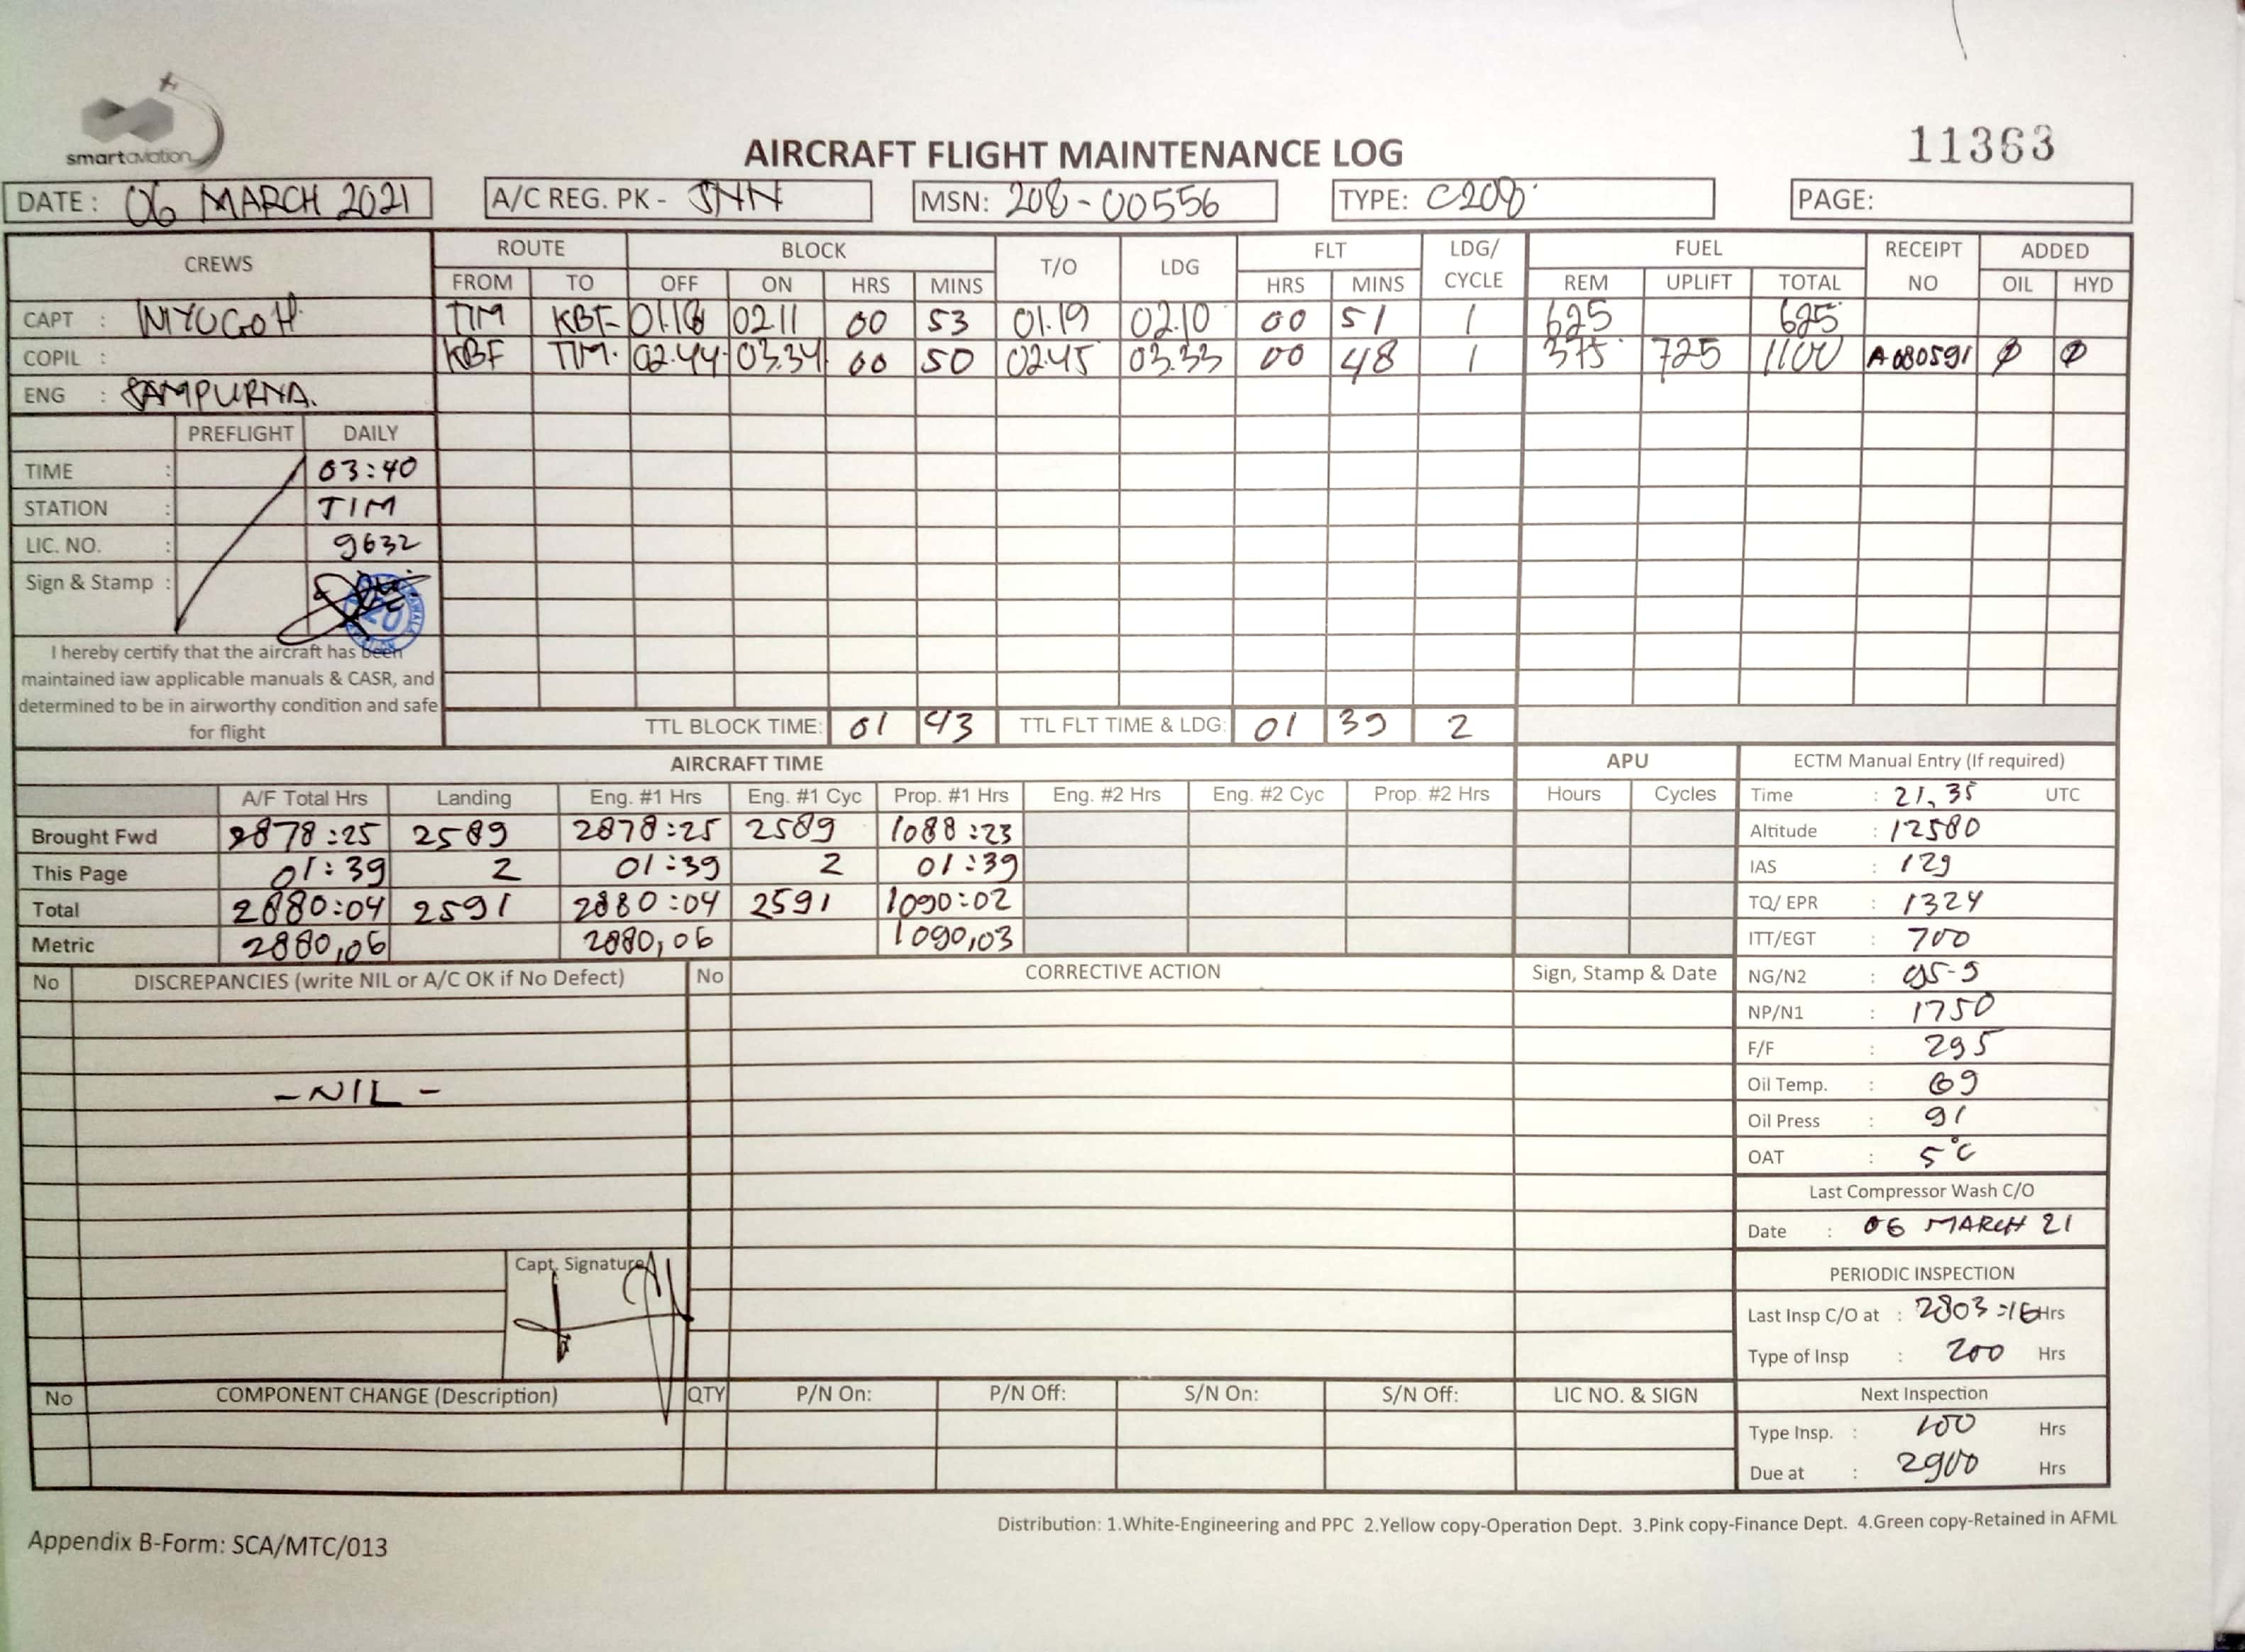 smartaviation
11363
AIRCRAFT FLIGHT MAINTENANCE LOG
DATE : 06 MARCH 2021 A/C REG. PK - SNN MSN: 208-00556 TYPE: C208 PAGE:
CREWS ROUTE BLOCK T/O LDG FLT LDG/ CYCLE FUEL RECEIPT NO ADDED
FROM TO OFF ON HRS MINS HRS MINS REM UPLIFT TOTAL OIL HYD
CAPT : TIM KBF 01.18 02.11 00 53 01.19 02.10 00 51 1 625 625
COPIL : KBF TIM. 02.44 03.34 00 50 02.45 03.33 00 48 1 375 725 1100 A080591 Ø Ø
ENG : SAMPURNA.
PREFLIGHT DAILY
TIME : 03:40
STATION : TIM
LIC. NO. : 9632
Sign & Stamp :
I hereby certify that the aircraft has been
maintained iaw applicable manuals & CASR, and
determined to be in airworthy condition and safe
for flight
TTL BLOCK TIME: 01 43 TTL FLT TIME & LDG: 01 39 2
AIRCRAFT TIME APU
A/F Total Hrs Landing Eng. #1 Hrs Eng. #1 Cyc Prop. #1 Hrs Eng. #2 Hrs Eng. #2 Cyc Prop. #2 Hrs Hours Cycles
Brought Fwd 2878:25 2589 2878:25 2589 1088:23
This Page 01:39 2 01:39 2 01:39
Total 2880:04 2591 2880:04 2591 1090:02
Metric 2880,06 2880,06 1090,03
ECTM Manual Entry (If required)
Time : 21,35 UTC
Altitude : 12580
IAS : 129
TQ/ EPR : 1324
ITT/EGT : 700
NG/N2 : 95-9
NP/N1 : 1750
F/F : 295
Oil Temp. : 69
Oil Press : 91
OAT : 5°C
Last Compressor Wash C/O
Date : 06 MARCH 21
PERIODIC INSPECTION
Last Insp C/O at : 2803:16 Hrs
Type of Insp : 200 Hrs
Next Inspection
Type Insp. : 100 Hrs
Due at : 2900 Hrs
No DISCREPANCIES (write NIL or A/C OK if No Defect) No CORRECTIVE ACTION Sign, Stamp & Date
-NIL-
Capt. Signature
No COMPONENT CHANGE (Description) QTY P/N On: P/N Off: S/N On: S/N Off: LIC NO. & SIGN
Distribution: 1.White-Engineering and PPC 2.Yellow copy-Operation Dept. 3.Pink copy-Finance Dept. 4.Green copy-Retained in AFML
Appendix B-Form: SCA/MTC/013